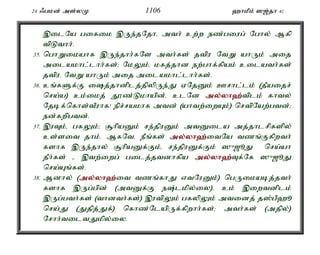 24 ஃபமன் அள்லமு 1106 ஹாமீம் ஸஜ்தா 41
இடையே பகைமை இருந்ததோ, அவர் உற்ற நண்பரைப் போல் ஆகி
விடுவார்.
35. பொறுமையாக இருந்தார்களே அவர்கள் தவிர வேறு யாரும் அதை
அடையமாட்டார்கள்; மேலும், மகத்தான நற்பாக்கியம் உடையவர்கள்
தவிர, வேறு யாரும் அதை அடையமாட்டார்கள்.
36. உங்களுக்கு ஷைத்தானிடத்திலிருந்து ஏதேனும் ஊசாட்டம் (தீயதைச்
செய்ய) உம்மைத் தூண்டுமாயின், உடனே அல்லாஹ்விடம் காவல்
தேடிக்கொள்வீராக; நிச்சயமாக அவன் (யாவற்றையும்) செவியேற்பவன்;
நன்கறிபவன்.
37. இரவும், பகலும்; சூரியனும் சந்திரனும் அவனுடைய அத்தாட்சிகளில்
உள்ளவை தாம். ஆகவே, நீங்கள் அல்லாஹ்வையே வணங்குகிறவர்
களாக இருந்தால் சூரியனுக்கும், சந்திரனுக்கும் ஸுஜூது செய்யா
தீர்கள் - இவற்றைப் படைத்தவனாகிய அல்லாஹ்வுக்கே ஸுஜூது
செய்யுங்கள்.
38. ஆனால் (அல்லாஹ்வை வணங்காது எவரேனும்) பெருமையடித்தவர்
களாக இருப்பின் (அவனுக்கு நஷ்டமில்லை). உம் இறைவனிடம்
இருப்பவர்கள் (வானவர்கள்) இரவிலும் பகலிலும் அவனைத் தஸ்பீஹூ
செய்து (துதித்துக்) கொண்டேயிருக்கிறார்கள்; அவர்கள் (அதில்)
சோர்வடைவதுமில்லை.